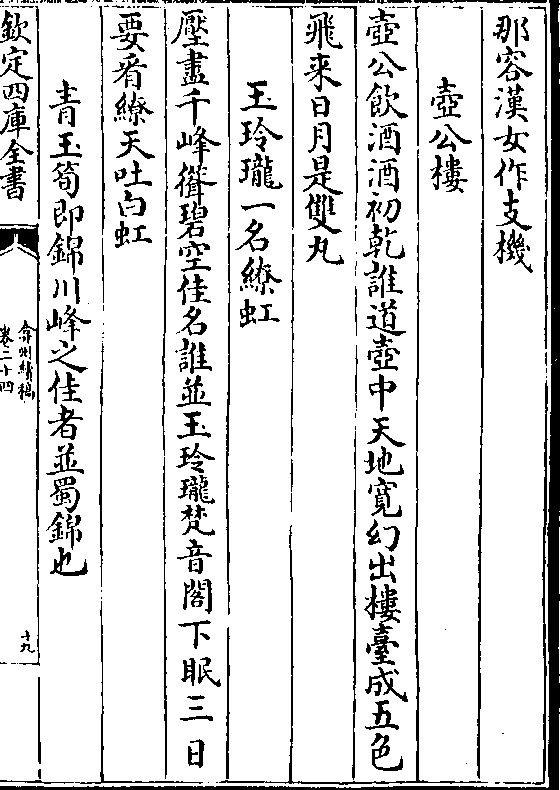 那容漢女作支機
壺公樓
壺公飲酒酒初乾誰道壺中天地寛幻出樓臺成五色
飛来日月是雙丸
玉玲瓏一名繚虹
壓盡千峰聳碧空佳名誰並玉玲瓏梵音閣下眠三日
要看繚天吐白虹
青玉筍即錦川峰之佳者並蜀錦也
欽定四庫全書
弇州續稿
卷二十四
十九